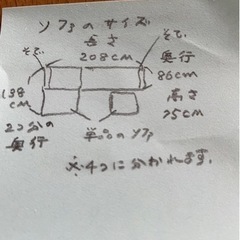 ソファのサイズ
長さ
208cm
そで
そで
奥行
86cm
高さ
75cm
138
cm
2つ分の
奥行
単品のソファ
※4つに分かれます。